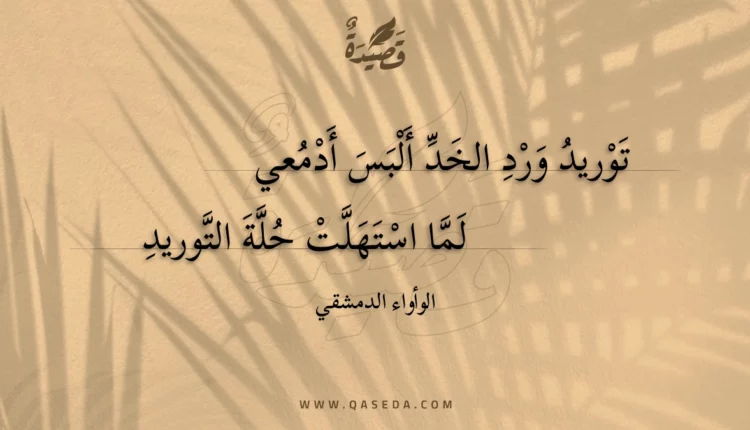 قَصِيْدَةٌ
تَوْرِيدُ وَرْدِ الخَدِّ أَلْبَسَ أَدْمُعي
لَمَّا اسْتَهَلَّتْ حُلَّةَ التَّوريدِ
الوأواء الدمشقي
WWW.QASEDA.COM